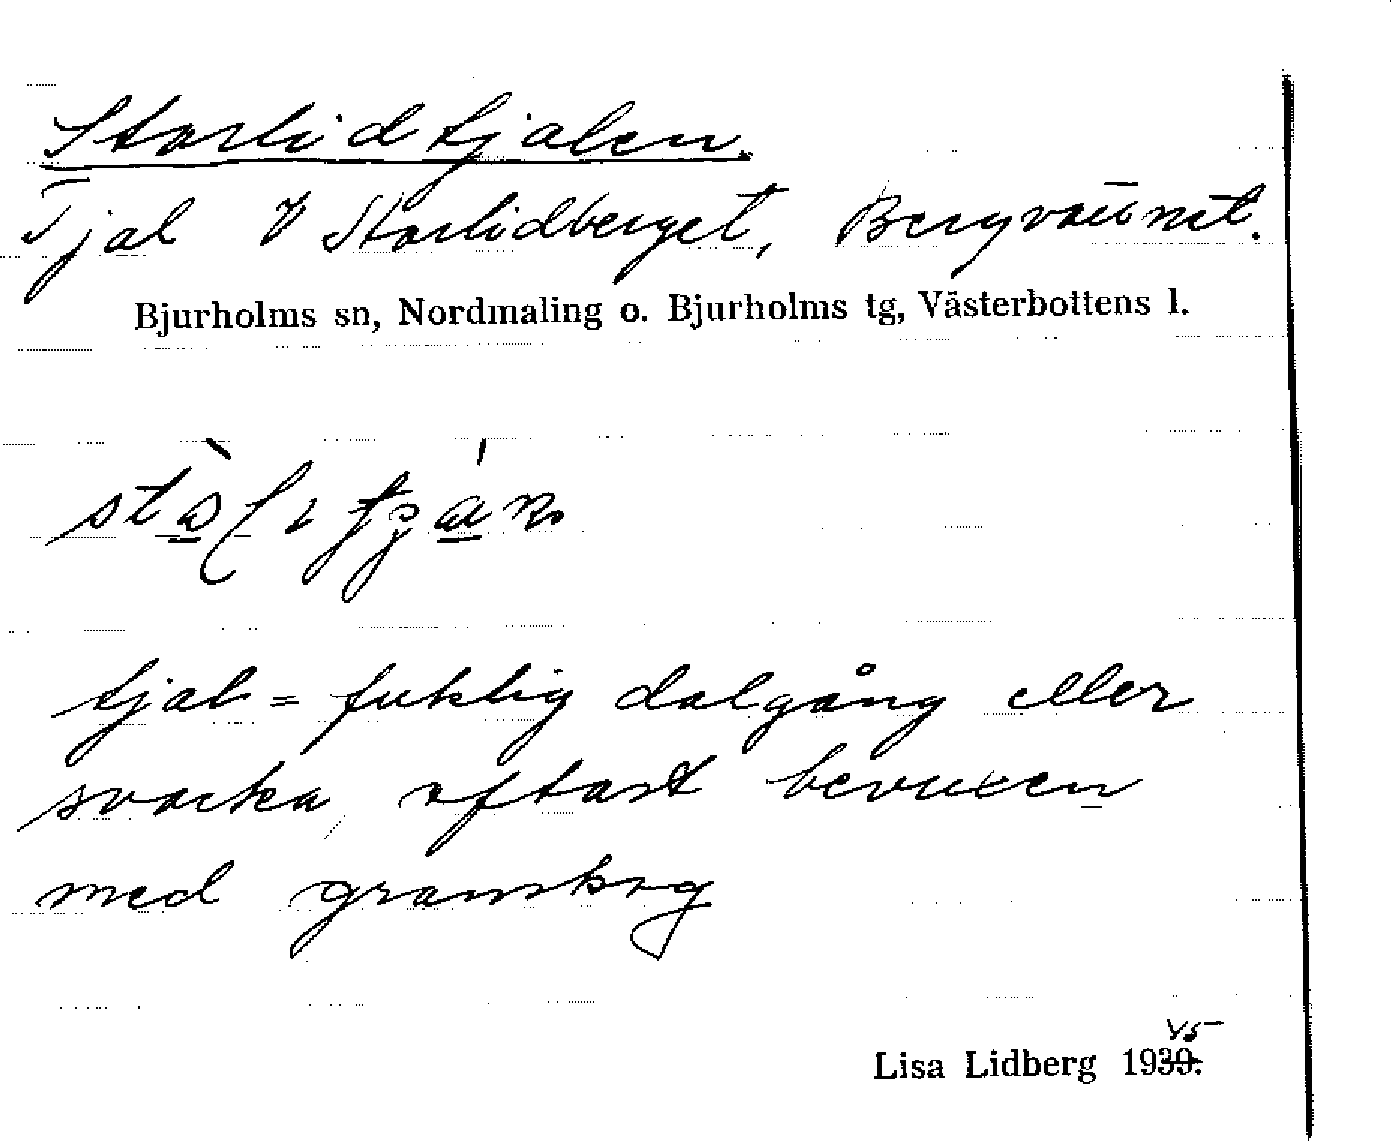 Storlidtjalen.
Tjal V Storlidberget, Bergvattnet.
Bjurholms sn, Nordmaling o. Bjurholms tg, Västerbottens l.
tjal = fuktig dalgång eller
svacka, oftast bevuxen
med granskog
45
Lisa Lidberg 1939.